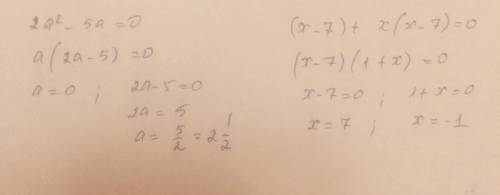 2a² - 5a = 0
a(2a-5) = 0
a = 0 ; 2a-5 = 0
2a = 5
a = 5/2 = 2 1/2
(x-7) + x(x-7) = 0
(x-7)(1+x) = 0
x-7 = 0 ; 1+x = 0
x = 7 ; x = -1